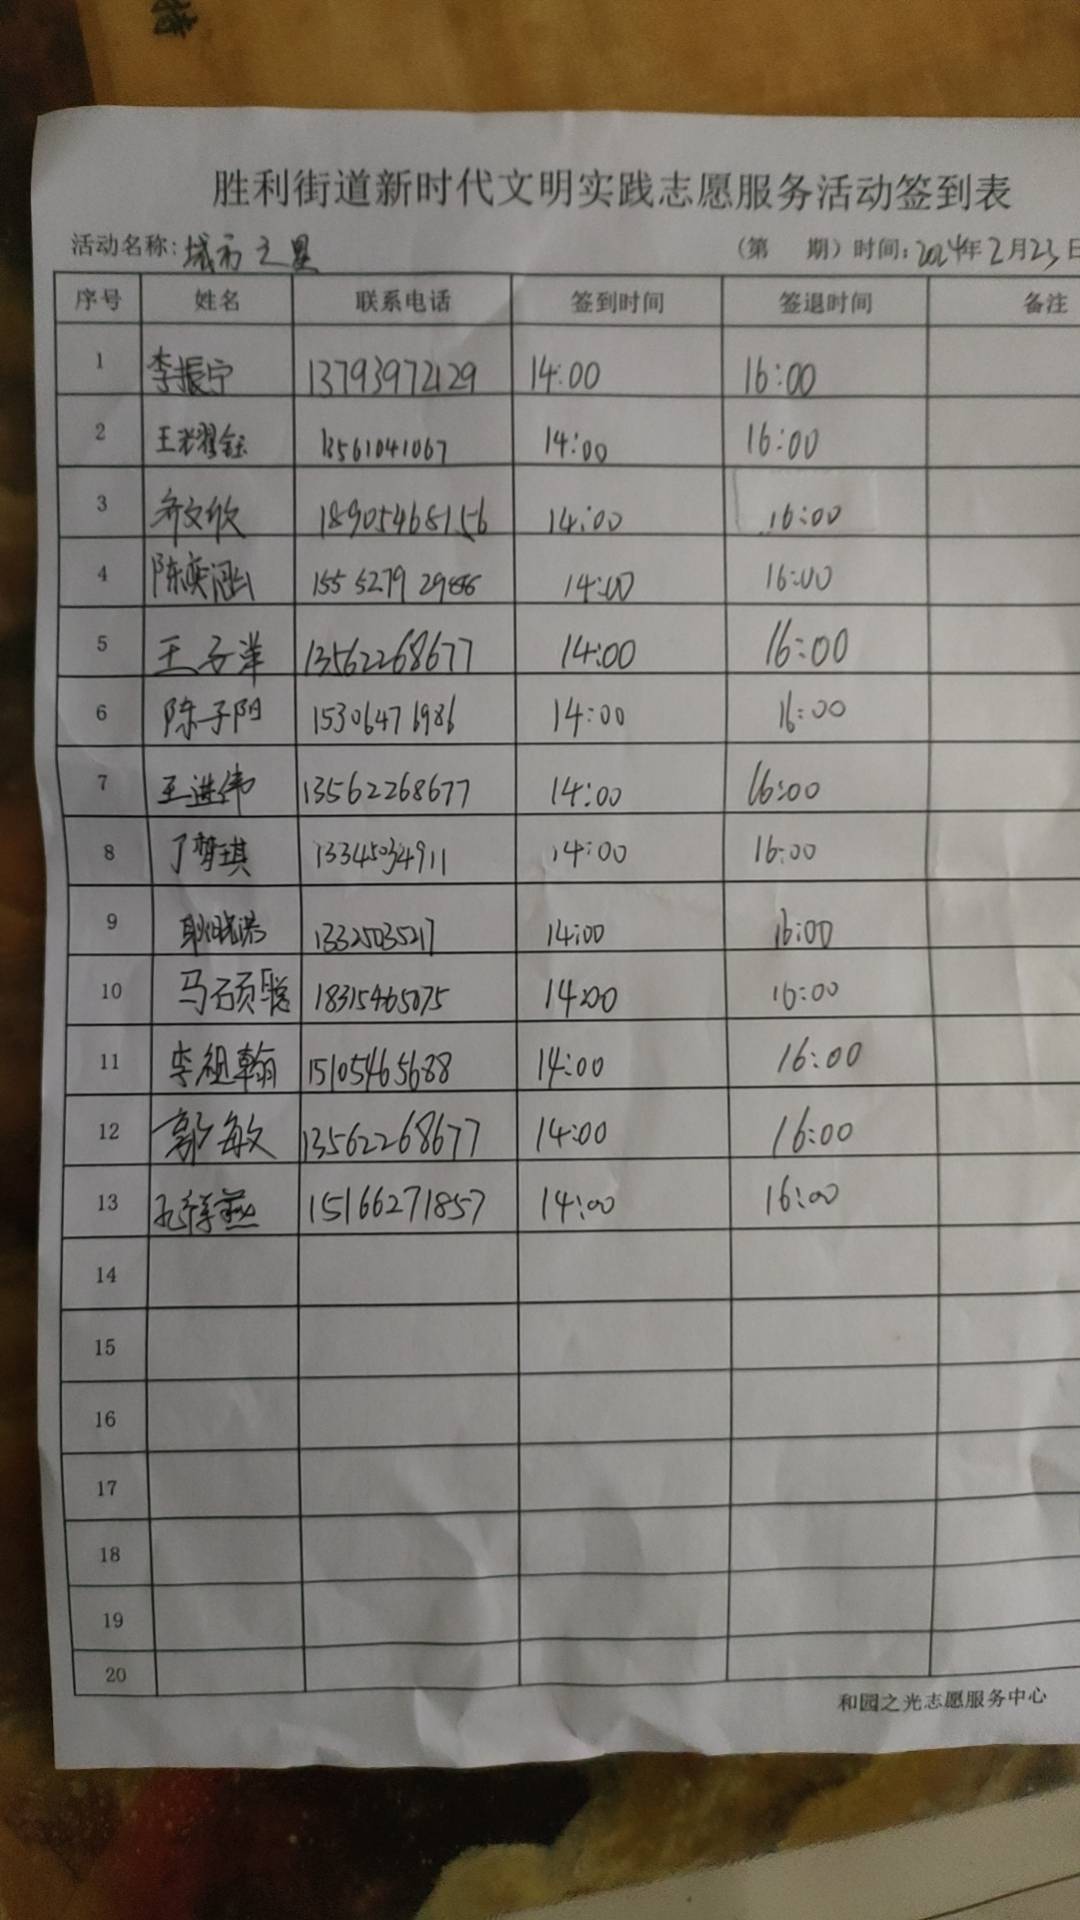 胜利街道新时代文明实践志愿服务活动签到表
活动名称: 城市之星 (第 期) 时间: 2024年2月23日
序号 姓名 联系电话 签到时间 签退时间 备注
1 李振宁 13793972129 14:00 16:00
2 王光耀钰 13561041067 14:00 16:00
3 乔文欣 18905468156 14:00 16:00
4 陈奕涵 155 5279 2986 14:00 16:00
5 王子洋 13562268677 14:00 16:00
6 陈子阳 15306471986 14:00 16:00
7 王进伟 13562268677 14:00 16:00
8 丁梦琪 13345034911 14:00 16:00
9 耿晓浩 13325035217 14:00 16:00
10 马硕聪 18315465075 14:00 16:00
11 李祖翰 15105465688 14:00 16:00
12 郭敏 13562268677 14:00 16:00
13 孔祥燕 15166271857 14:00 16:00
14
15
16
17
18
19
20
和园之光志愿服务中心